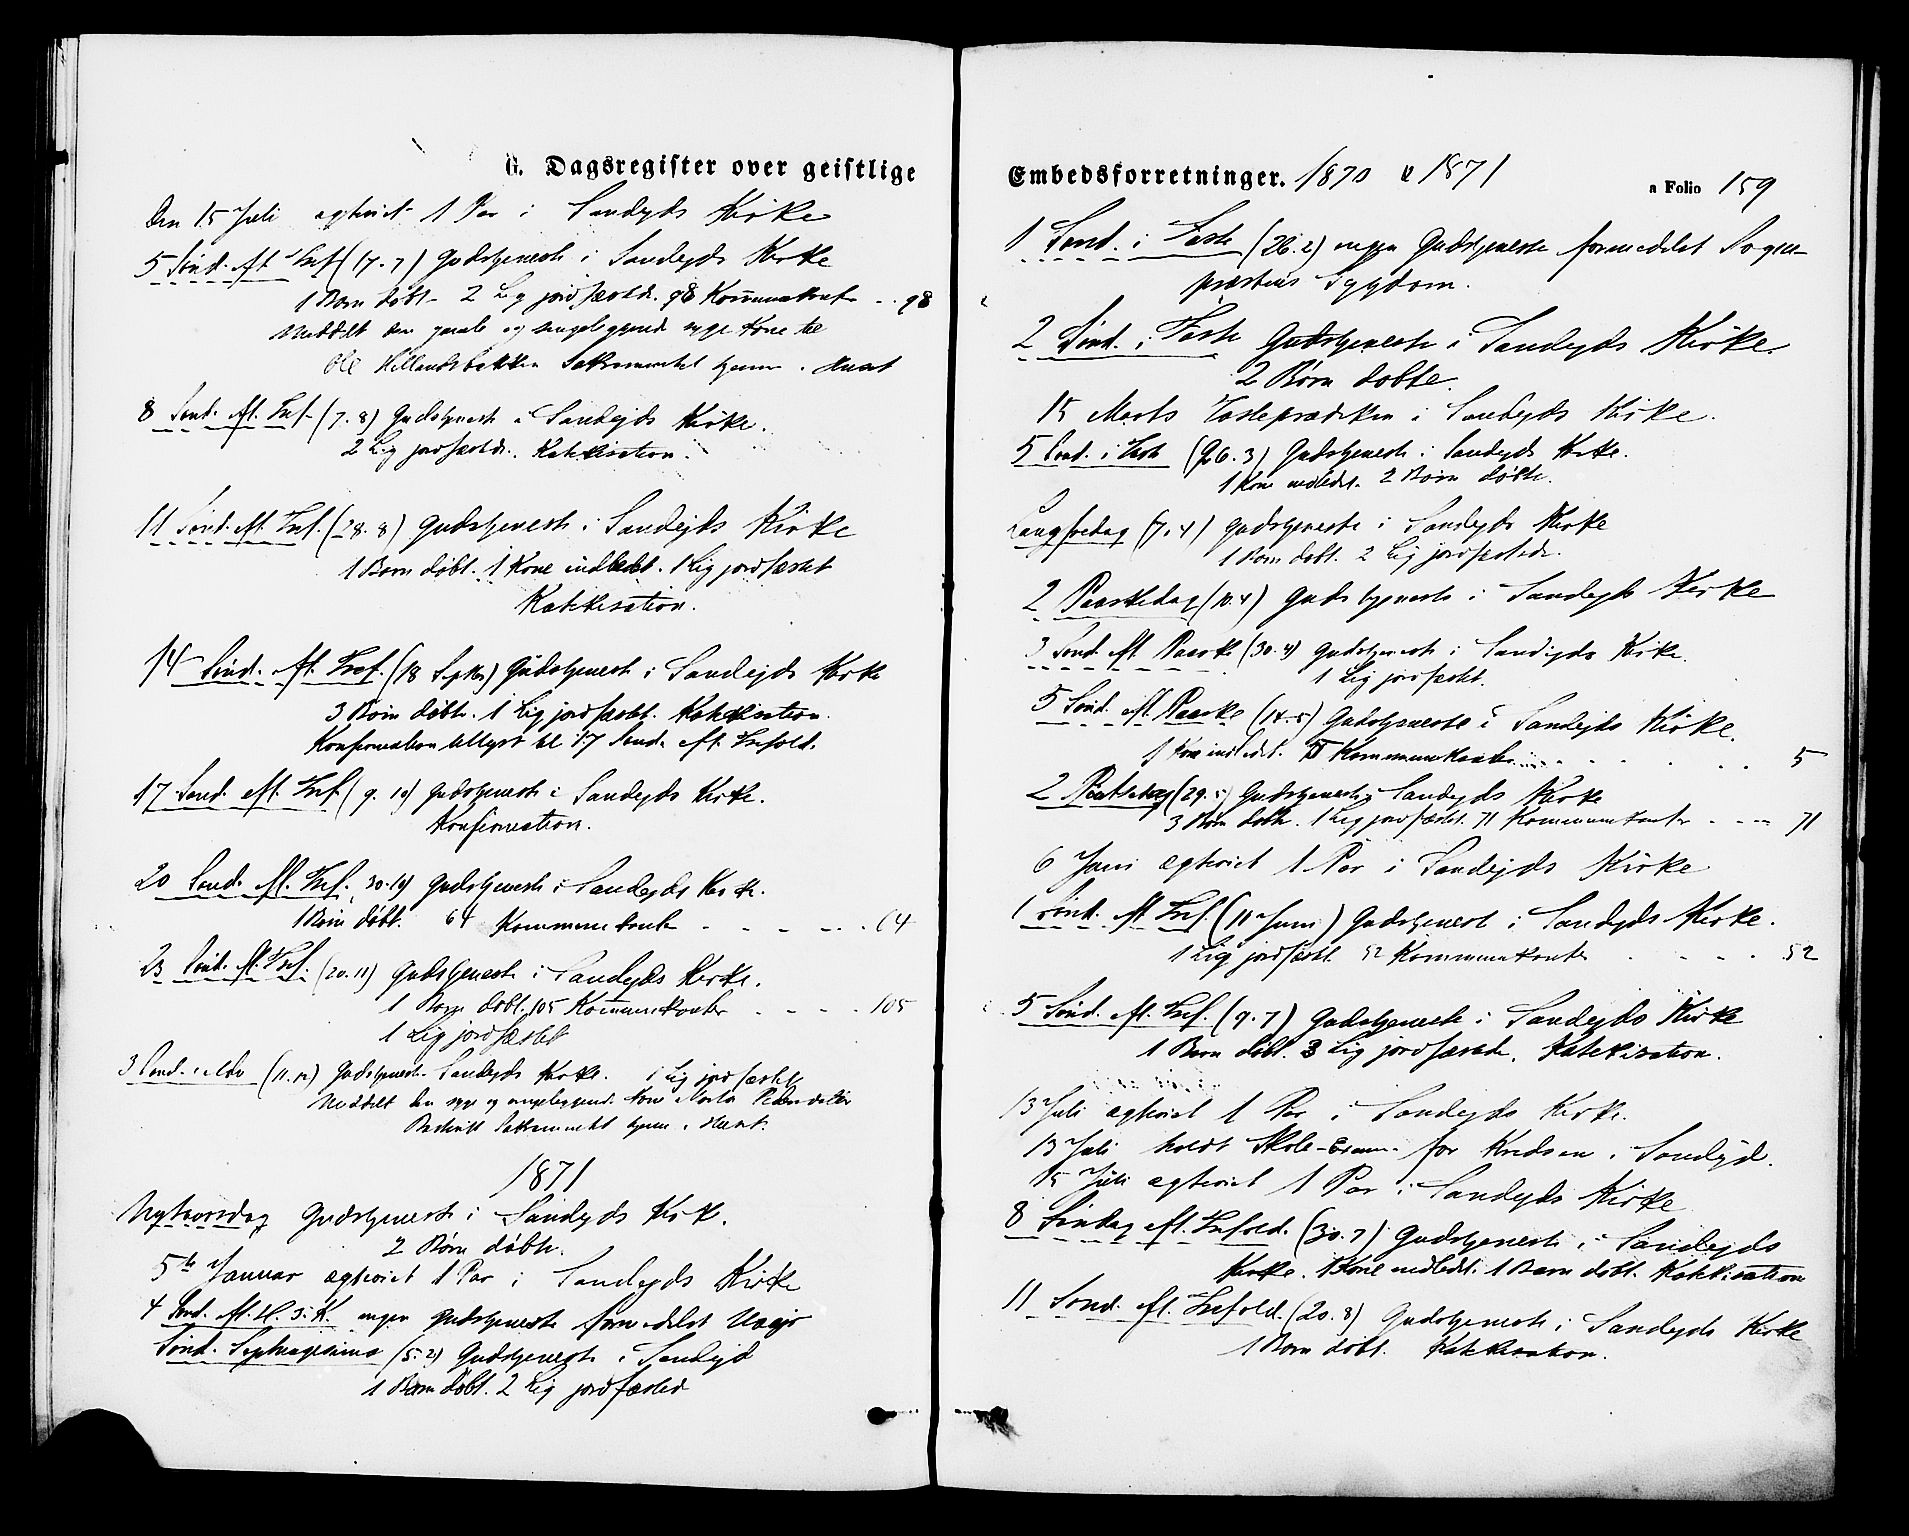 G. Dagsregister over geistlige
Den 15 Juli egteviet 1 Par i Sandejds Kirke
5 Sönd. eft. Tref (17.7) Gudstjeneste i Sandejds Kirke
1 Barn döbt 2 Lig jordfæstede. 98 Kommunikanter - . 98
Meddelt den gamle og sengeliggende syge Kone
Ole Hellandsbakken Sakramentet hjemme i Huset
8 Sönd. eft. Tref (7.8) Gudstjeneste i Sandejds Kirke.
2 Lig jordfæstede. Katekisation.
11 Sönd. eft. Tref. (28.8) Gudstjeneste i Sandejds Kirke
1 Barn döbt. 1 Kone indledet. 1 Lig jordfæstet
Katekisation.
14 Sönd. eft. Tref. (18 Septbr) Gudstjeneste i Sandejds Kirke
3 Börn döbte. 1 Lig jordfæstet. Katekisation.
Konfirmation tillyst til 17 Sönd. eft. Trefold.
17 Sönd. eft. Tref. (9.10) Gudstjeneste i Sandejds Kirke.
Konfirmation.
20 Sönd. eft. Tref. 30.10) Gudstjeneste i Sandejds Kirke.
1 Barn döbt. 64 Kommunikanter . . . . . 64
23 Sönd. eft. Tref. (20.11) Gudstjeneste i Sandejds Kirke.
1 Barn döbt. 105 Kommunikanter . . . . 105
1 Lig jordfæstet
3 Sönd. i Adv (11.12) Gudstjeneste Sandejds Kirke. 1 Lig jordfæstet
Meddelt den syge og sengeliggende Kone Marta Pedersdatter
Sakramentet hjemme i Huset.
1871
Nytaarsdag Gudstjeneste i Sandejds Kirk.
2 Börn döbte.
5te Januar egteviet 1 Par i Sandejds Kirke
4 Sönd. eft. H. 3. K. ingen Gudstjeneste formedelst Uvejr
Sönd. Septuagesima (5.2) Gudstjeneste i Sandejd
1 Barn döbt. 2 Lig jordfæsted
Embedsforretninger. 1870 & 1871
a Folio 159
1 Sönd. i Faste (26.2) ingen Gudstjeneste formedelst Sogne-
præstens Sygdom.
2 Sönd. i Faste Gudstjeneste i Sandejds Kirke.
2 Börn döbte.
15 Marts Fasteprædiken i Sandejds Kirke.
5 Sönd. i Faste (26.3) Gudstjeneste i Sandejds Kirke.
1 Kone indledet. 2 Börn döbte.
Langfredag (7.4) Gudstjeneste i Sandejds Kirke
1 Barn döbt. 2 Lig jordfæstede.
2 Paaskedag (10.4) Gudstjeneste i Sandejds Kirke
3 Sönd. eft. Paaske (30.4) Gudstjeneste i Sandejds Kirke.
1 Lig jordfæstet.
5 Sönd. eft. Paaske (14.5) Gudstjeneste i Sandejds Kirke.
1 Kone indledet. 5 Kommunikanter . . . . . 5
2 Pintsedag (29.5) Gudstjeneste i Sandejds Kirke
3 Börn döbte. 1 Lig jordfæstet. 71 Kommunikanter - - - 71
6 Juni egteviet 1 Par i Sandejds Kirke
1 Sönd. eft. Tref. (11 Juni) Gudstjeneste i Sandejds Kirke.
1 Lig jordfæstet 52 Kommunikanter . . . . 52
5 Sönd. eft. Tref. (9.7) Gudstjeneste i Sandejds Kirke
1 Barn döbt. 3 Lig jordfæstede. Katekisation.
13 Juli egteviet 1 Par i Sandejds Kirke.
13 Juli holdt Skole-Exam. for Kredsen i Sandejd.
15 Juli egteviet 1 Par i Sandejds Kirke
8 Söndag eft. Trefold. (30.7) Gudstjeneste i Sandejds
Kirke. 1 Kone indledet. 1 Barn döbt. Katekisation
11 Sönd. eft. Trefold. (20.8) Gudstjeneste i Sandejds Kirke
1 Barn döbt. Katekisation.